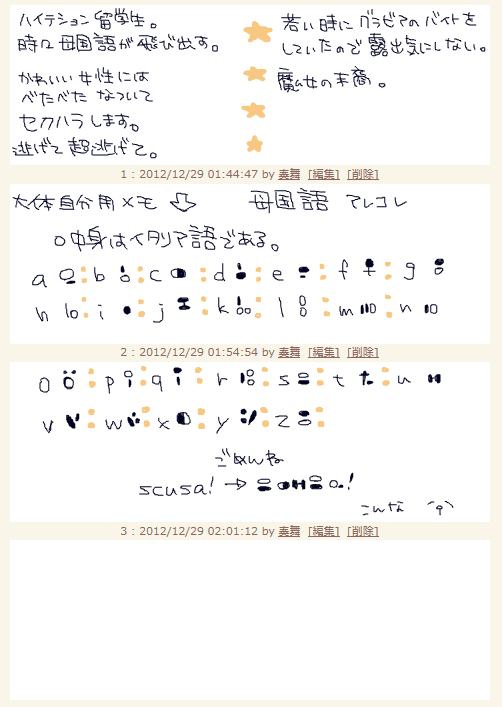 ハイテション留学生。
時々母国語が飛び出す。
かわいい女性には
べたべたなついて
セクハラします。
逃げて超逃げて。
若い時にグラビアのバイトを
していたので露出気にしない。
魔女の末裔。
1 : 2012/12/29 01:44:47 by 奏舞 [編集] [削除]
大体自分用メモ ⇩ 母国語 アレコレ
○中身はイタリア語である。
a b c d e f g
h i j k l m n
2 : 2012/12/29 01:54:54 by 奏舞 [編集] [削除]
o p q r s t u
v w x y z
ごめんね
scusa! →
こんな
3 : 2012/12/29 02:01:12 by 奏舞 [編集] [削除]